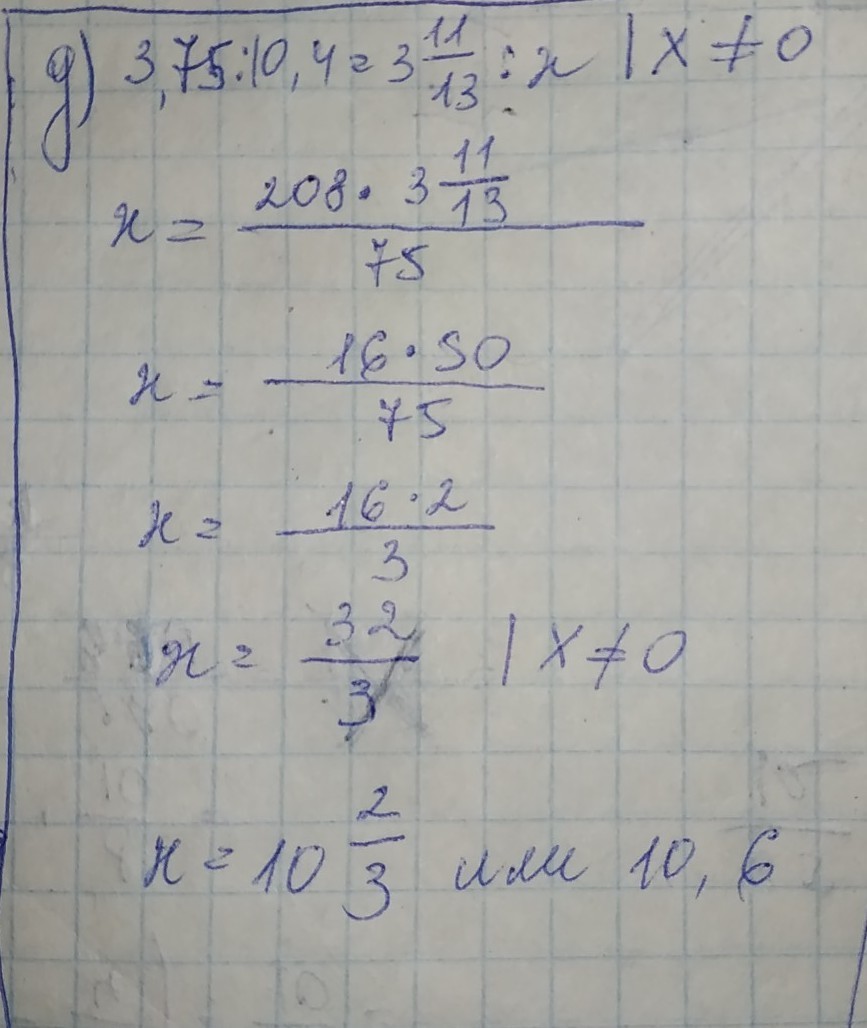 д) 3,75:10,4 = 3 11/13 : x | x ≠ 0
x = (208 · 3 11/13) / 75
x = (16 · 50) / 75
x = (16 · 2) / 3
x = 32/3 | x ≠ 0
x = 10 2/3 или 10,6